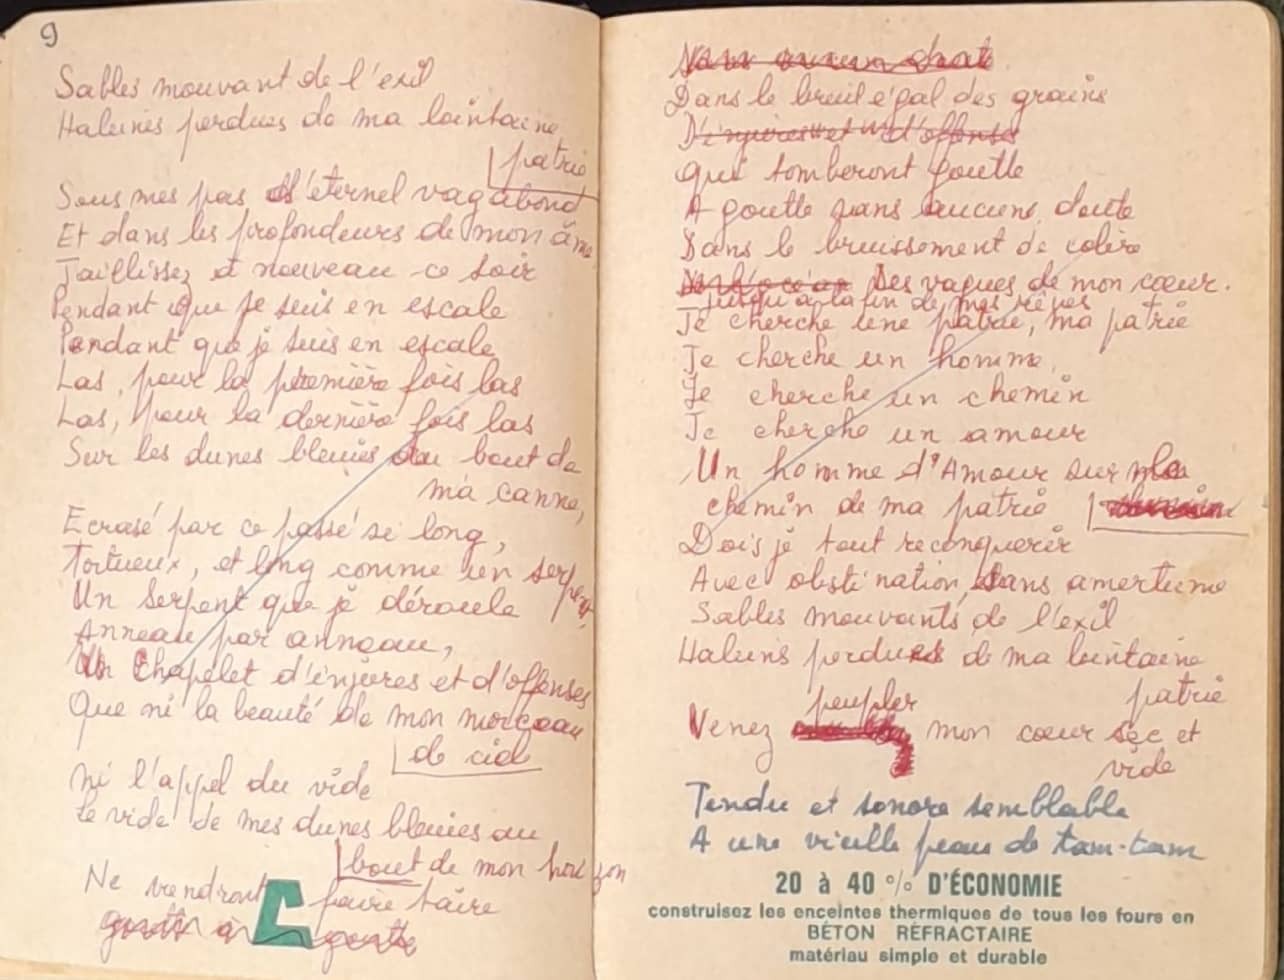 9
Sables mouvant de l'exil
Haleines perdues de ma lointaine
patrie
Sous mes pas d'éternel vagabond
Et dans les profondeurs de mon âme
Jaillissez à nouveau ce soir
Pendant que je suis en escale
Pendant que je suis en escale
Las, pour la première fois las
Las, pour la dernière fois las
Sur les dunes bleuies au bout de
ma canne,
Ecrasé par ce passé si long,
Tortueux, et long comme un serpent,
Un serpent que je déroule
Anneau par anneau,
Un Chapelet d'injures et d'offenses
Que ni la beauté de mon morceau
de ciel
ni l'appel du vide
Le vide de mes dunes bleuies au
bout de mon horizon
Ne viendront faire taire
goutte à goutte
Sans aucun doute
Dans le bruit égal des grains
D'injures et d'offenses
Qui tomberont goutte
A goutte sans aucune doute
Dans le bruissement de colère
Des vagues de mon cœur.
jusqu'à la fin de mes rêves
Je cherche une patrie, ma patrie
Je cherche un homme,
Je cherche un chemin
Je cherche un amour
Un homme d'Amour sur le
chemin de ma patrie
Dois je tout reconquérir
Avec obstination, sans amertume
Sables mouvants de l'exil
Haleins perdues de ma lointaine
patrie
peupler
Venez mon cœur sec et
vide
Tendu et sonore semblable
A une vieille peau de tam-tam
20 à 40 % D'ÉCONOMIE
construisez les enceintes thermiques de tous les fours en
BÉTON RÉFRACTAIRE
matériau simple et durable